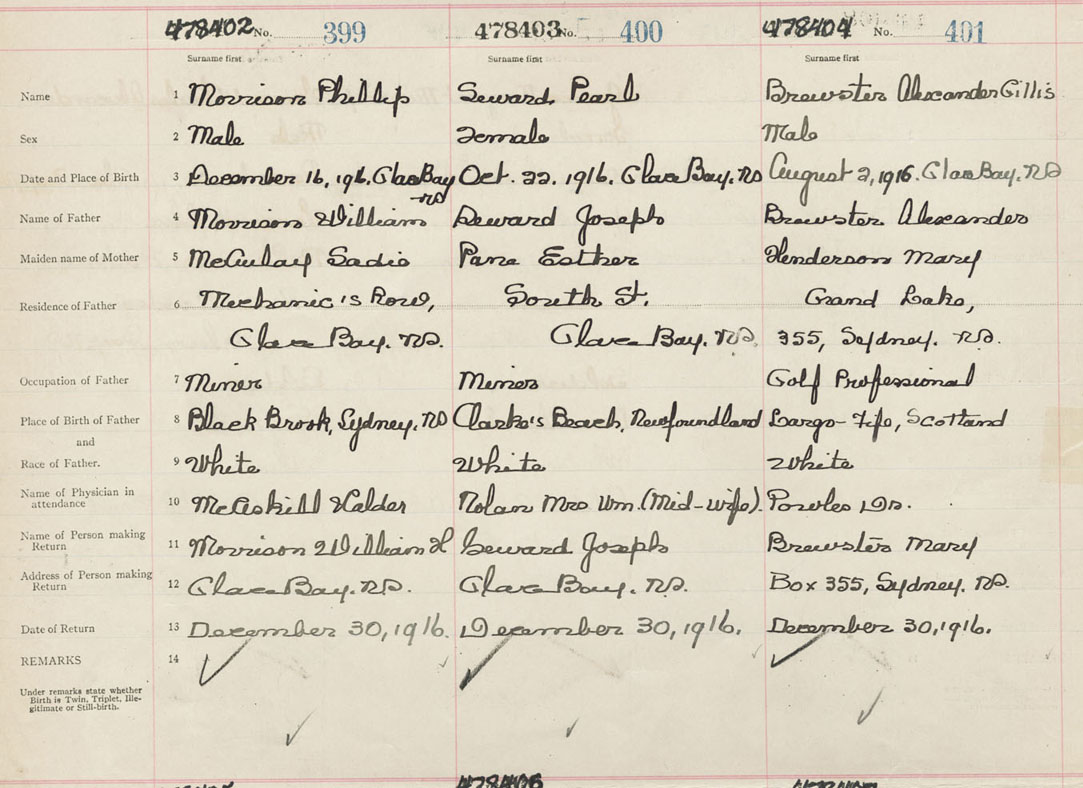 478402 No. 399 478403 No. 400 478404 No. 401
Surname first Surname first Surname first
Name 1 Morrison Phillip Seward Pearl Brewster Alexander Gillis
Sex 2 Male Female Male
Date and Place of Birth 3 December 16, 1916. Glace Bay Oct. 22. 1916. Glace Bay. NS August 2, 1916. Glace Bay. NS
NS
Name of Father 4 Morrison William Seward Joseph Brewster Alexander
Maiden name of Mother 5 McAulay Sadie Pane Esther Henderson Mary
Residence of Father 6 Mechanic's Row, South St. Grand Lake,
Glace Bay. NS. Glace Bay. NS. 355, Sydney. NS.
Occupation of Father 7 Miner Miner Golf Professional
Place of Birth of Father 8 Black Brook, Sydney, NS Clarke's Beach, Newfoundland Largo-Fife, Scotland
and
Race of Father. 9 White White White
Name of Physician in
attendance 10 McAskill Calder Nolan Mrs Wm. (Mid-wife). Dr.
Name of Person making
Return 11 Morrison William H Seward Joseph Brewster Mary
Address of Person making
Return 12 Glace Bay. NS. Glace Bay. NS. Box 355, Sydney. NS.
Date of Return 13 December 30, 1916. December 30, 1916. December 30, 1916.
REMARKS 14
Under remarks state whether
Birth is Twin, Triplet, Ille-
gitimate or Still-birth.
478406